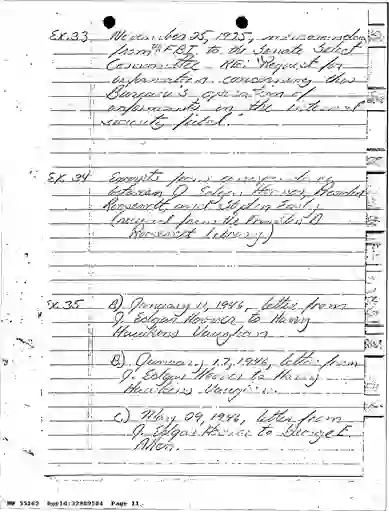 EX.33 November 25, 1975, memorandum
from FBI to the Senate Select
Committee RE: "Request for
information concerning the
Bureau's operation of
informants in the internal
security field."
EX. 34 Excerpts from correspondence
between J. Edgar Hoover, President
Roosevelt, and Stephen Early
(received from the Franklin D.
Roosevelt library)
EX.35 A) January 11, 1946, letter from
J. Edgar Hoover to Harry
Hawkins Vaughan
B) January 17, 1946, letter from
J. Edgar Hoover to Harry
Hawkins Vaughan
C) May 29, 1946, letter from
J. Edgar Hoover to George E.
Allen.
NW 55162 DocId:32989504 Page 11